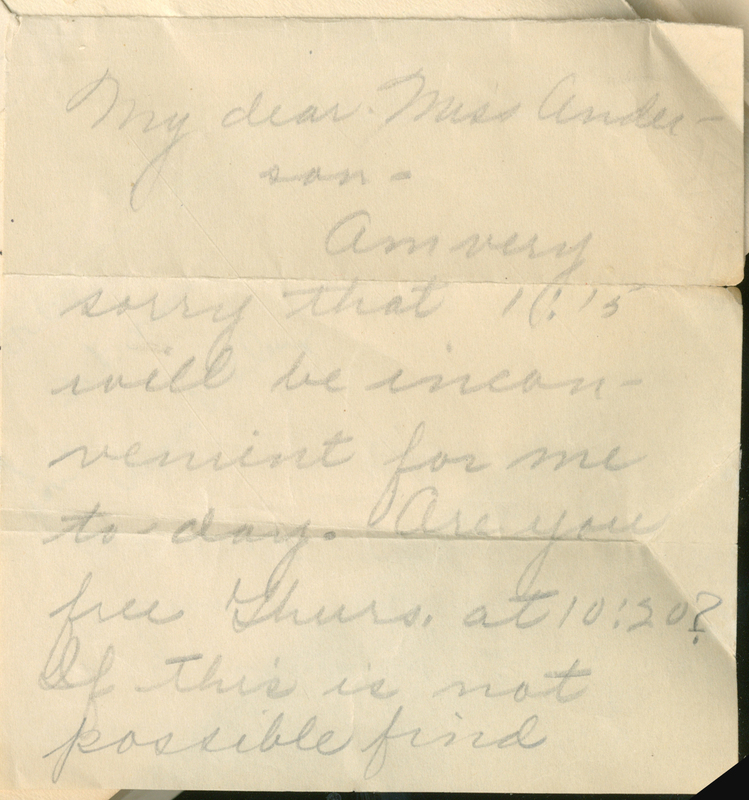 My dear Miss Ander-
son-
Am very
sorry that 11:15
will be incon-
venient for me
to-day. Are you
free Thurs. at 10:20?
If this is not
possible find